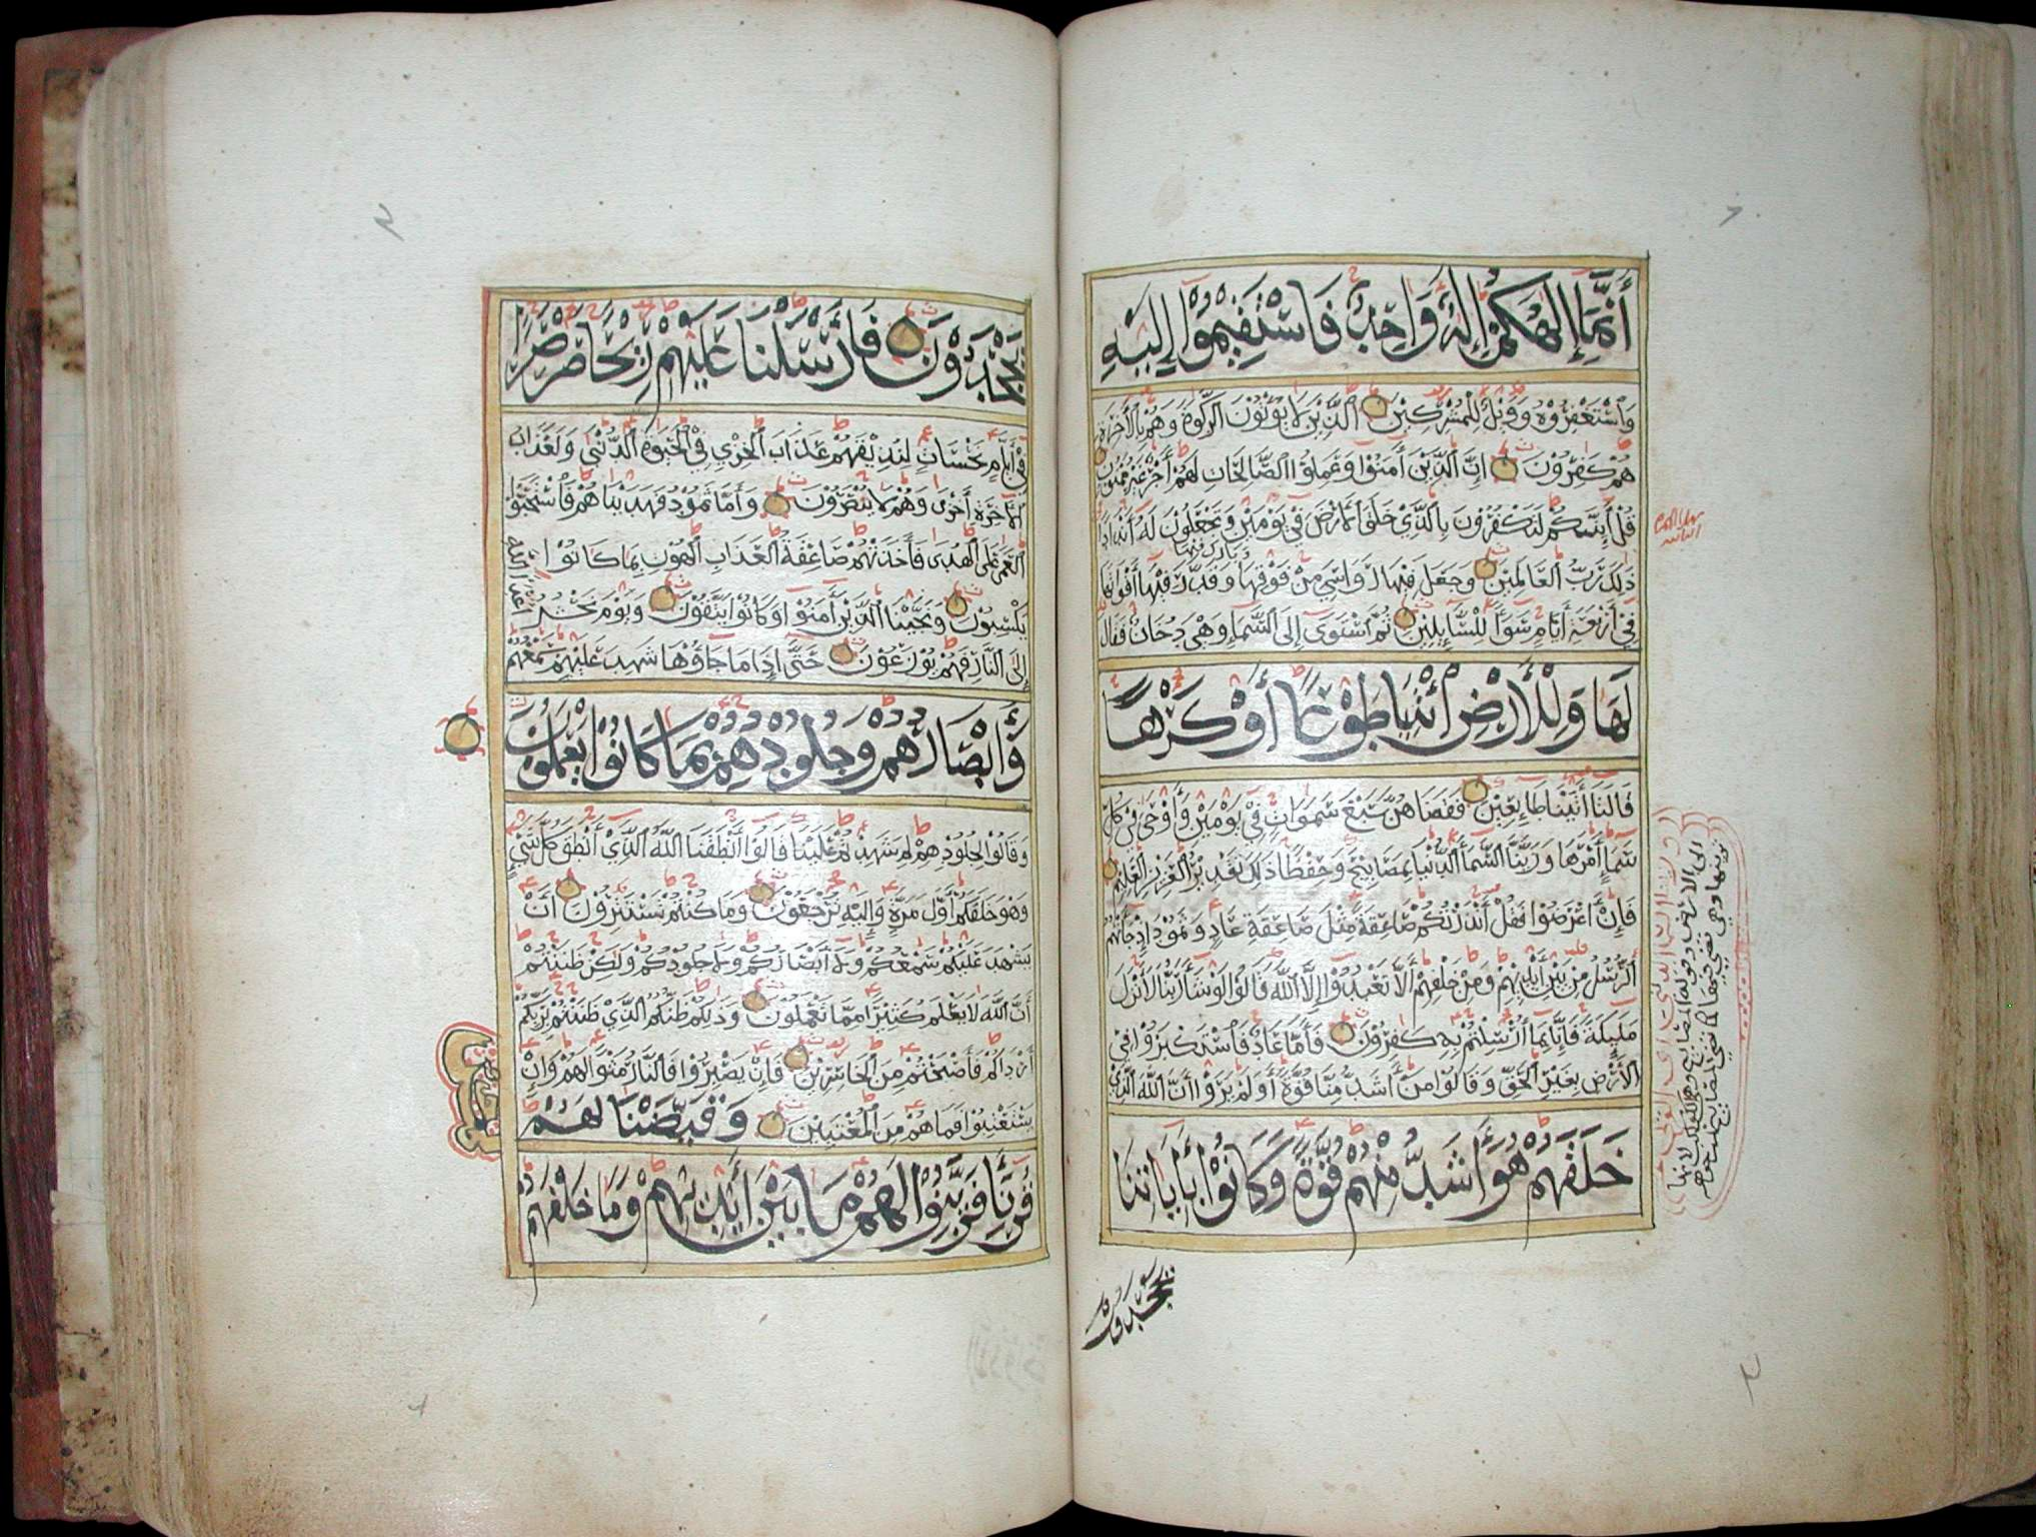 أَنَّمَا إِلٰهُكُمْ إِلٰهٌ وَاحِدٌ فَاسْتَقِيمُوْا إِلَيْهِ
وَاسْتَغْفِرُوْهُ وَوَيْلٌ لِلْمُشْرِكِيْنَ الَّذِيْنَ لَا يُوْتُوْنَ الزَّكٰوةَ وَهُمْ بِالْأَخِرَةِ
هُمْ كٰفِرُوْنَ إِنَّ الَّذِيْنَ أٰمَنُوْا وَعَمِلُوْا الصَّالِحَاتِ لَهُمْ أَجْرٌ غَيْرُ مَمْنُوْنٍ
قُلْ أَئِنَّكُمْ لَتَكْفُرُوْنَ بِالَّذِيْ خَلَقَ الْأَرْضَ فِيْ يَوْمَيْنِ وَتَجْعَلُوْنَ لَهُ أَنْدَادًا
ذٰلِكَ رَبُّ الْعَالَمِيْنَ وَجَعَلَ فِيْهَا رَوَاسِيَ مِنْ فَوْقِهَا وَبَارَكَ فِيْهَا وَقَدَّرَ فِيْهَا أَقْوَاتَهَا
فِيْ أَرْبَعَةِ أَيَّامٍ سَوَاءً لِلسَّائِلِيْنَ ثُمَّ اسْتَوَى إِلَى السَّمَاءِ وَهْيَ دُخَانٌ فَقَالَ
لَهَا وَلِلْأَرْضِ ائْتِيَا طَوْعًا أَوْ كَرْهًا
قَالَتَا أَتَيْنَا طَائِعِيْنَ فَقَضَاهُنَّ سَبْعَ سَمٰوَاتٍ فِيْ يَوْمَيْنِ وَأَوْحَى فِيْ كُلِّ
سَمَاءٍ أَمْرَهَا وَزَيَّنَّا السَّمَاءَ الدُّنْيَا بِمَصَابِيْحَ وَحِفْظًا ذٰلِكَ تَقْدِيْرُ الْعَزِيْزِ الْعَلِيْمِ
فَإِنْ أَعْرَضُوْا فَقُلْ أَنْذَرْتُكُمْ صَاعِقَةً مِثْلَ صَاعِقَةِ عَادٍ وَثَمُوْدَ إِذْ جَاءَتْهُمُ
الرُّسُلُ مِنْ بَيْنِ أَيْدِيْهِمْ وَمِنْ خَلْفِهِمْ أَلَّا تَعْبُدُوْا إِلَّا اللّٰهَ قَالُوْا لَوْ شَاءَ رَبُّنَا لَأَنْزَلَ
مَلٰئِكَةً فَإِنَّا بِمَا أُرْسِلْتُمْ بِهِ كٰفِرُوْنَ فَأَمَّا عَادٌ فَاسْتَكْبَرُوْا فِيْ
الْأَرْضِ بِغَيْرِ الْحَقِّ وَقَالُوْا مَنْ أَشَدُّ مِنَّا قُوَّةً أَوَلَمْ يَرَوْا أَنَّ اللّٰهَ الَّذِيْ
خَلَقَهُمْ هُوَ أَشَدُّ مِنْهُمْ قُوَّةً وَكَانُوْا بِأٰيَاتِنَا
يجحدون
يَجْحَدُوْنَ فَأَرْسَلْنَا عَلَيْهِمْ رِيْحًا صَرْصَرًا
فِيْ أَيَّامٍ نَحْسَاتٍ لِنُذِيْقَهُمْ عَذَابَ الْخِزْيِ فِيْ الْحَيٰوةِ الدُّنْيَى وَلَعَذَابُ
الْأٰخِرَةِ أَخْزَى وَهُمْ لَا يُنْصَرُوْنَ وَأَمَّا ثَمُوْدُ فَهَدَيْنَاهُمْ فَاسْتَحَبُّوْا
الْعَمَى عَلَى الْهُدَى فَأَخَذَتْهُمْ صَاعِقَةُ الْعَذَابِ الْهُوْنِ بِمَا كَانُوْا
يَكْسِبُوْنَ وَنَجَّيْنَا الَّذِيْنَ أٰمَنُوْا وَكَانُوْا يَتَّقُوْنَ وَيَوْمَ نَحْشُرُ أَعْدَاءَ اللّٰهِ
إِلَى النَّارِ فَهُمْ يُوْزَعُوْنَ حَتَّى إِذَا مَا جَاؤُوْهَا شَهِدَ عَلَيْهِمْ سَمْعُهُمْ
وَأَبْصَارُهُمْ وَجُلُودُهُمْ بِمَا كَانُوْا يَعْمَلُوْنَ
وَقَالُوْا لِجُلُوْدِهِمْ لِمَ شَهِدْتُمْ عَلَيْنَا قَالُوْا أَنْطَقَنَا اللّٰهُ الَّذِيْ أَنْطَقَ كُلَّ شَيْءٍ
وَهُوَ خَلَقَكُمْ أَوَّلَ مَرَّةٍ وَإِلَيْهِ تُرْجَعُوْنَ وَمَا كُنْتُمْ تَسْتَتِرُوْنَ أَنْ
يَشْهَدَ عَلَيْكُمْ سَمْعُكُمْ وَلَا أَبْصَارُكُمْ وَلَا جُلُوْدُكُمْ وَلٰكِنْ ظَنَنْتُمْ
أَنَّ اللّٰهَ لَا يَعْلَمُ كَثِيْرًا مِمَّا تَعْمَلُوْنَ وَذٰلِكُمْ ظَنُّكُمُ الَّذِيْ ظَنَنْتُمْ بِرَبِّكُمْ
أَرْدَاكُمْ فَأَصْبَحْتُمْ مِنَ الْخَاسِرِيْنَ فَإِنْ يَصْبِرُوْا فَالنَّارُ مَثْوًا لَهُمْ وَإِنْ
يَسْتَعْتِبُوْا فَمَا هُمْ مِنَ الْمُعْتَبِيْنَ وَقَيَّضْنَا لَهُمْ
قُرَنَاءَ فَزَيَّنُوْا لَهُمْ مَا بَيْنَ أَيْدِيْهِمْ وَمَا خَلْفَهُمْ